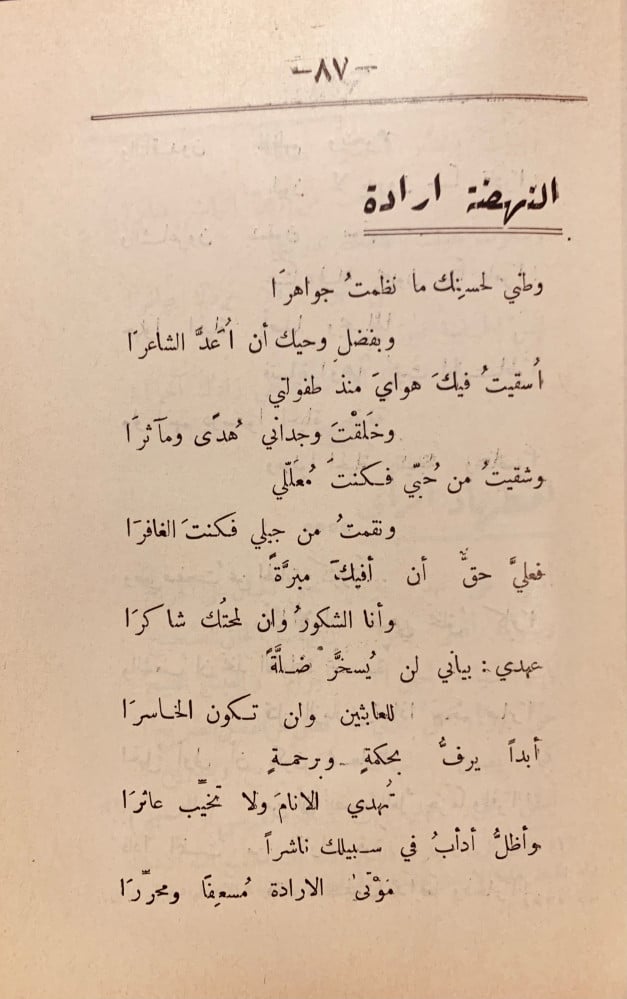 -٨٧-
النهضة ارادة
وطني لحسنِك ما نظمتُ جواهرَا
وبفضلِ وحيك أن أُعدَّ الشاعرَا
أُسقيتُ فيكَ هوايَ منذ طفولتي
وخلَقْتَ وجداني هُدًى ومآثرَا
وشقيتُ من حُبّي فكنتَ مُعلّلي
ونقمتُ من جيلي فكنتَ الغافرَا
فعليَّ حقٌّ أن أفيكَ مبرَّةً
وأنا الشكورُ وان لمحتُك شاكرَا
عهدي : بياني لن يُسخَّرَ ضلَّةً
للعابثين وان تكون الخاسرَا
أبداً يرفُّ بحكمةٍ وبرحمةٍ
تُهدي الانامَ ولا تخيّب عاثرَا
وأظلُّ أدأبُ في سبيلك ناشراً
مَوْتىٰ الارادة مُسعِفًا ومحرّرَا